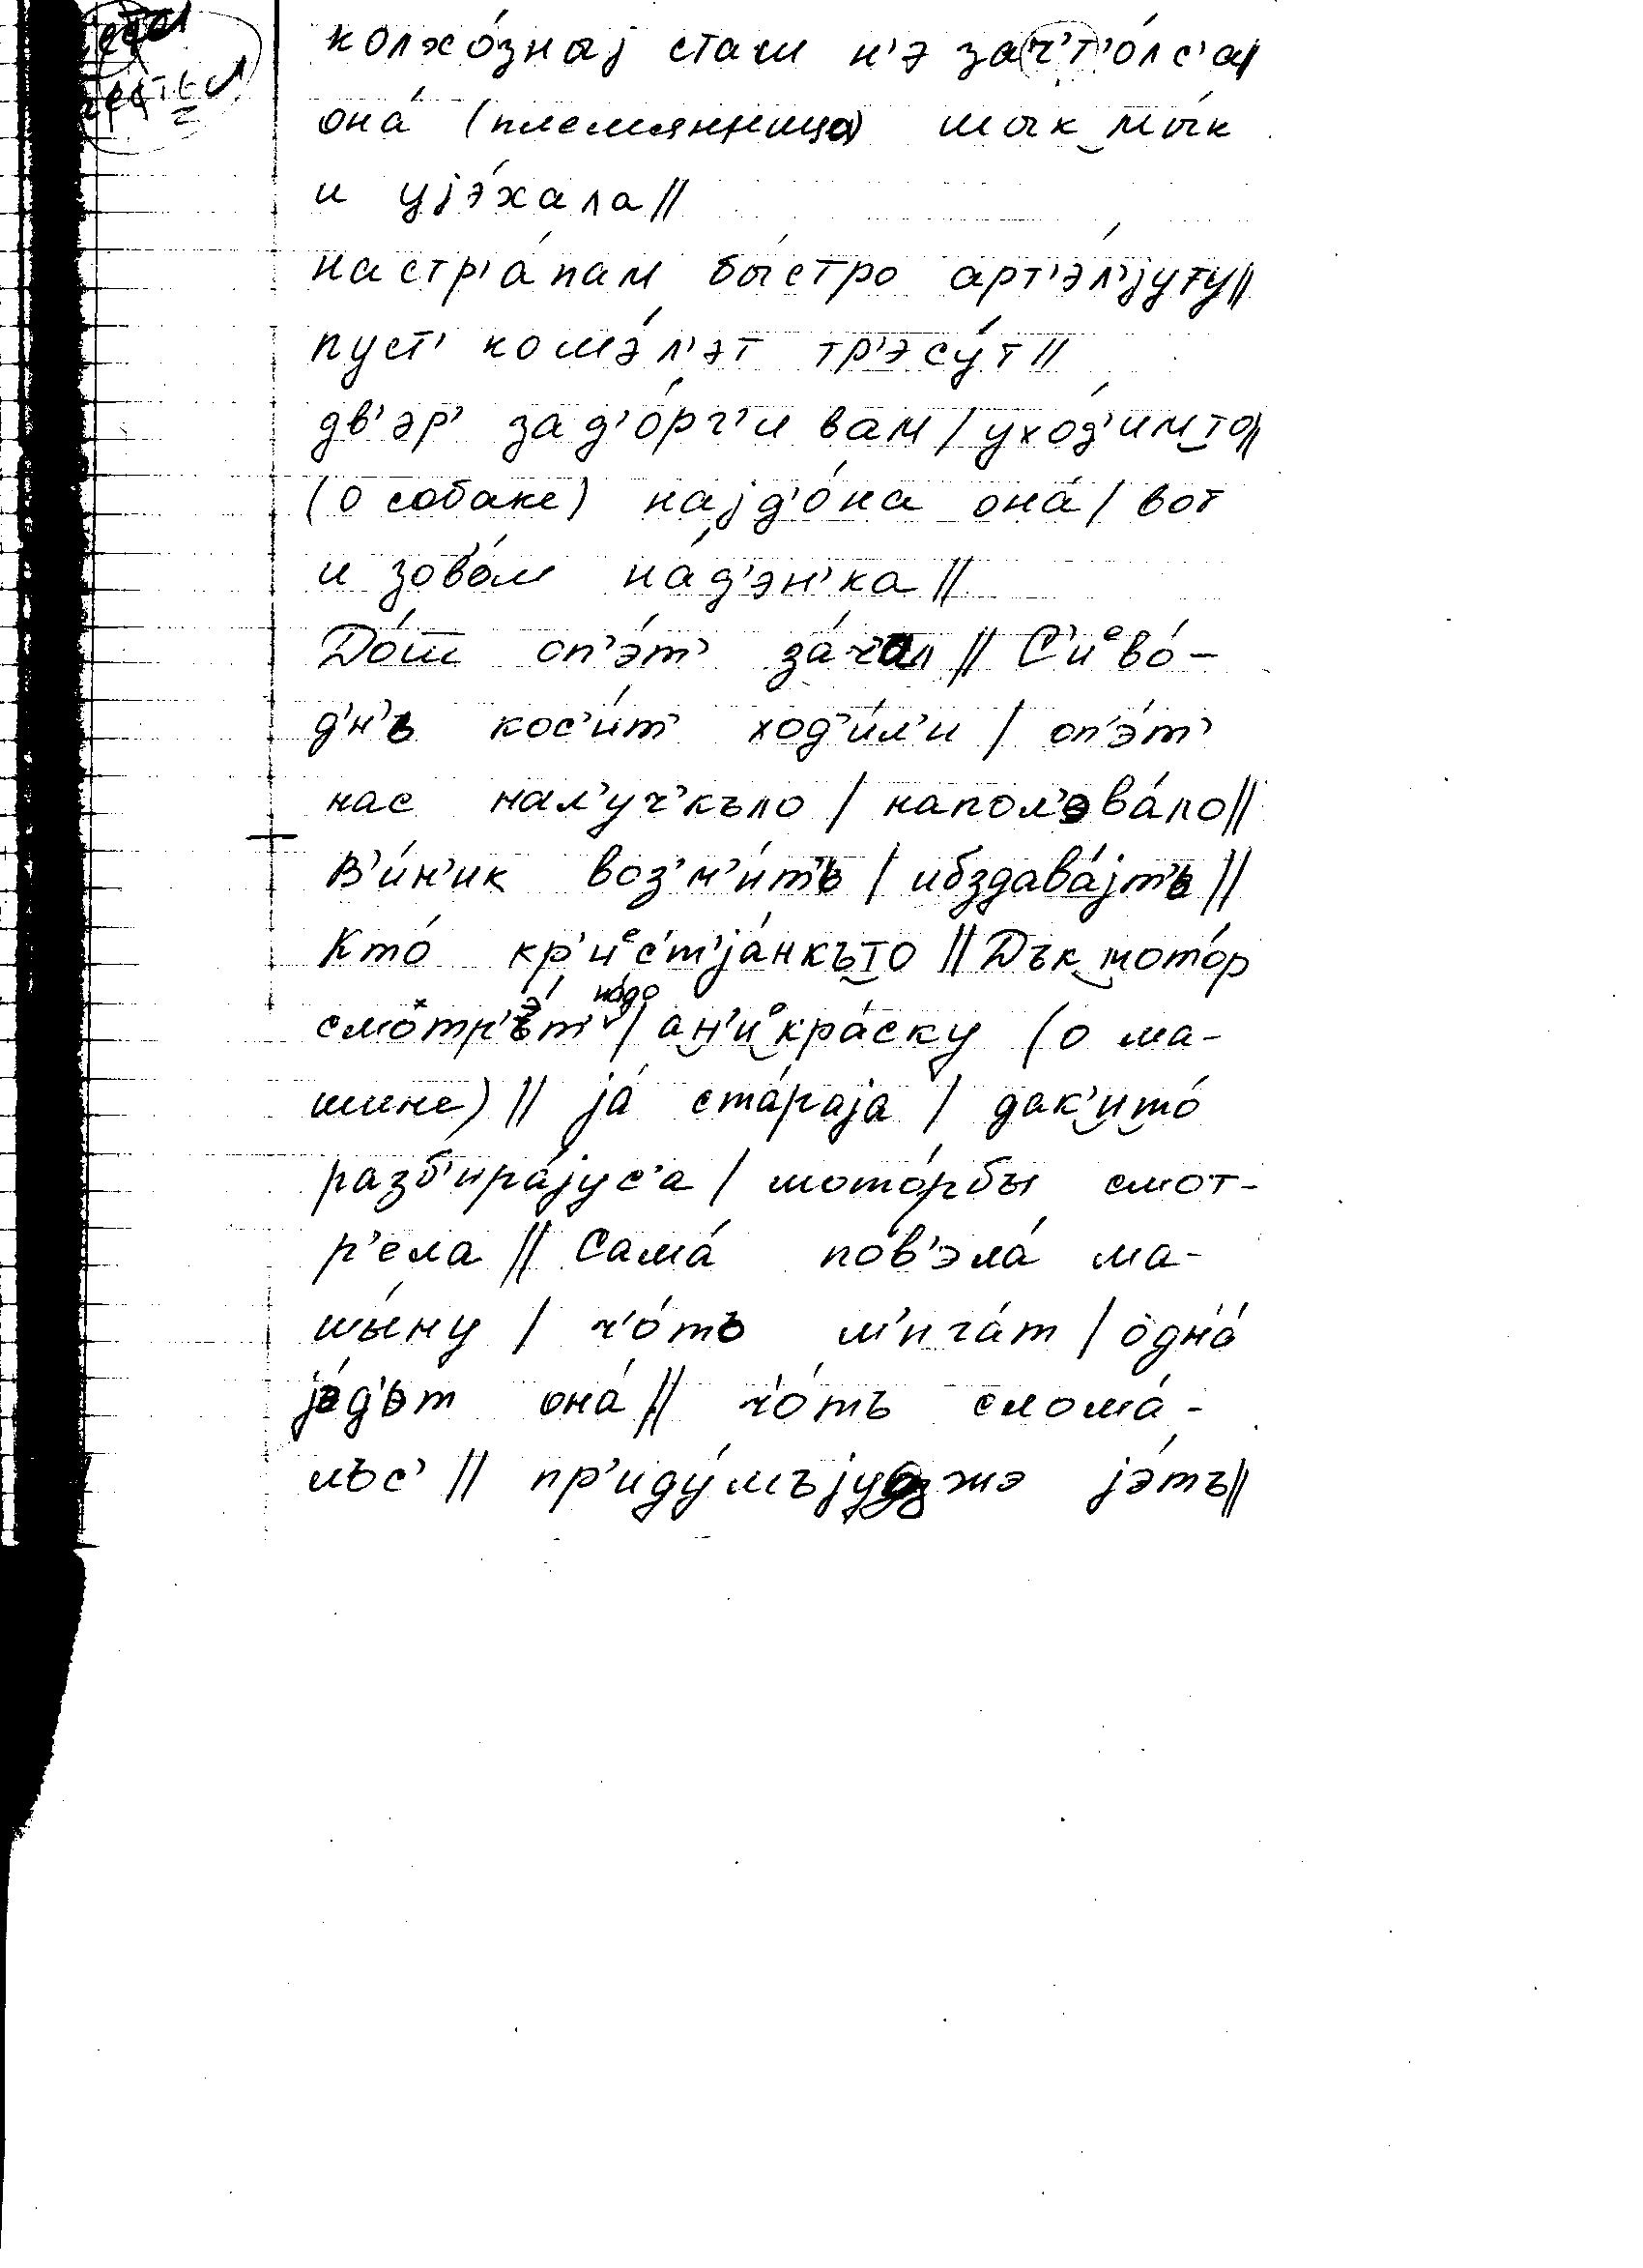 колхо́знај сташ н'э зач'т'о́лс'а//
она́ (племянница) мык‿мы́к
и ујэ́хала//
настр'а́пам бы́стро арт'э́л'јуту//
пуст' комэ́л'эт тр'эсу́т//
дв'эр' зад'о́рг'и вам/ухо́д'им‿то//
(о собаке) најд'о́на она́/ вот
и зово́м на́д'эн'ка//
До́ш оп'э́т' за́чал // С'иᵉво́-
д'н'ъ кос'и́т' ход'и́л'и / оп'э́т'
нас нал'уч'къло / напол'эва́ло//
В'и́н'ик воз'м'и́т'ь / ибздава́јт'ь //
Кто́ кр'иᵉс'т'ја́нкъ‿то // Дък‿мото́р
смотр'э́т' на́до / а‿н'иᵉ‿кра́ску (о ма-
шине) // ја́ ста́раја / дак'‿и‿то́
разб'ира́јус'а / мото́рбы смот-
р'ела // Сама́ пов'эла́ ма-
шы́ну / ч'о́тъ м'ига́т / одна́
јэ́д'ьт она́ // ч'о́тъ слома́-
лъс' // пр'иду́мъјуд жэ јэ́тъ//